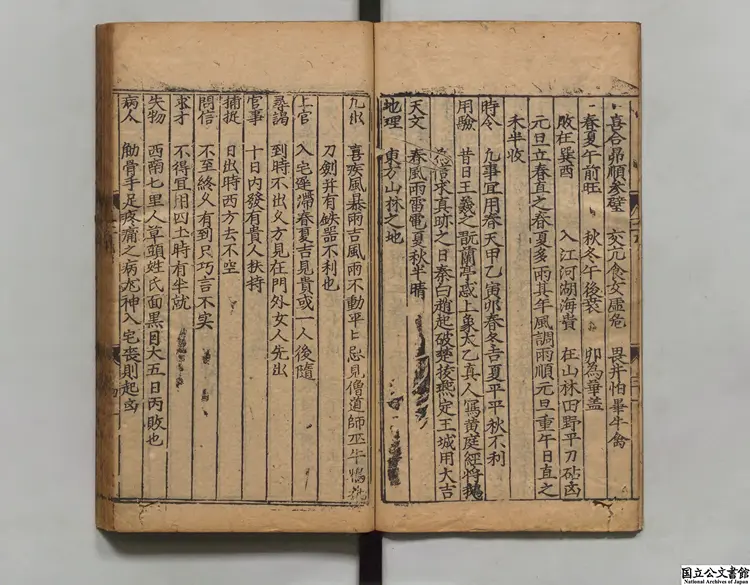 喜合昴順參壁 交亢危女虛危 畏井怕畢牛禽
春夏午前旺 秋冬午後衰 卯為華蓋
敗在巽酉 入江河湖海貴 在山林田野平刀砧凶
元旦立春直之春夏多雨其年風調雨順元旦重午日直之
未半收
時令 九事宜用春天甲乙寅卯春冬吉夏平平秋不利
用驗 昔日王羲之訮蘭亭感上象太乙真人寫黄庭經將鵝
信求真跡之日春曰趙起破楚後燕定王城用大吉
天文 春風雨雷電夏秋半晴
地理 東方山林之地
九出 喜疾風暴雨吉風雨不動平上忌見僧道師巫牛鴨
刀劍并有鉄器不利也
上官 入宅遲滯春夏吉見貴或一人後隨
尋謁 到時不出乂方見在門外女人先出
官事 十日內發有貴人扶持
捕捉 日出時西方去不空
問信 不至終乂有到只巧言不实
求才 不得宜用四土時有半就
失物 西南七里人草頭姓氏面黒目大五日丙敗也
病人 觔骨手足疼痛之病尢神入宅喪則起凶
国立公文書館
National Archives of Japan